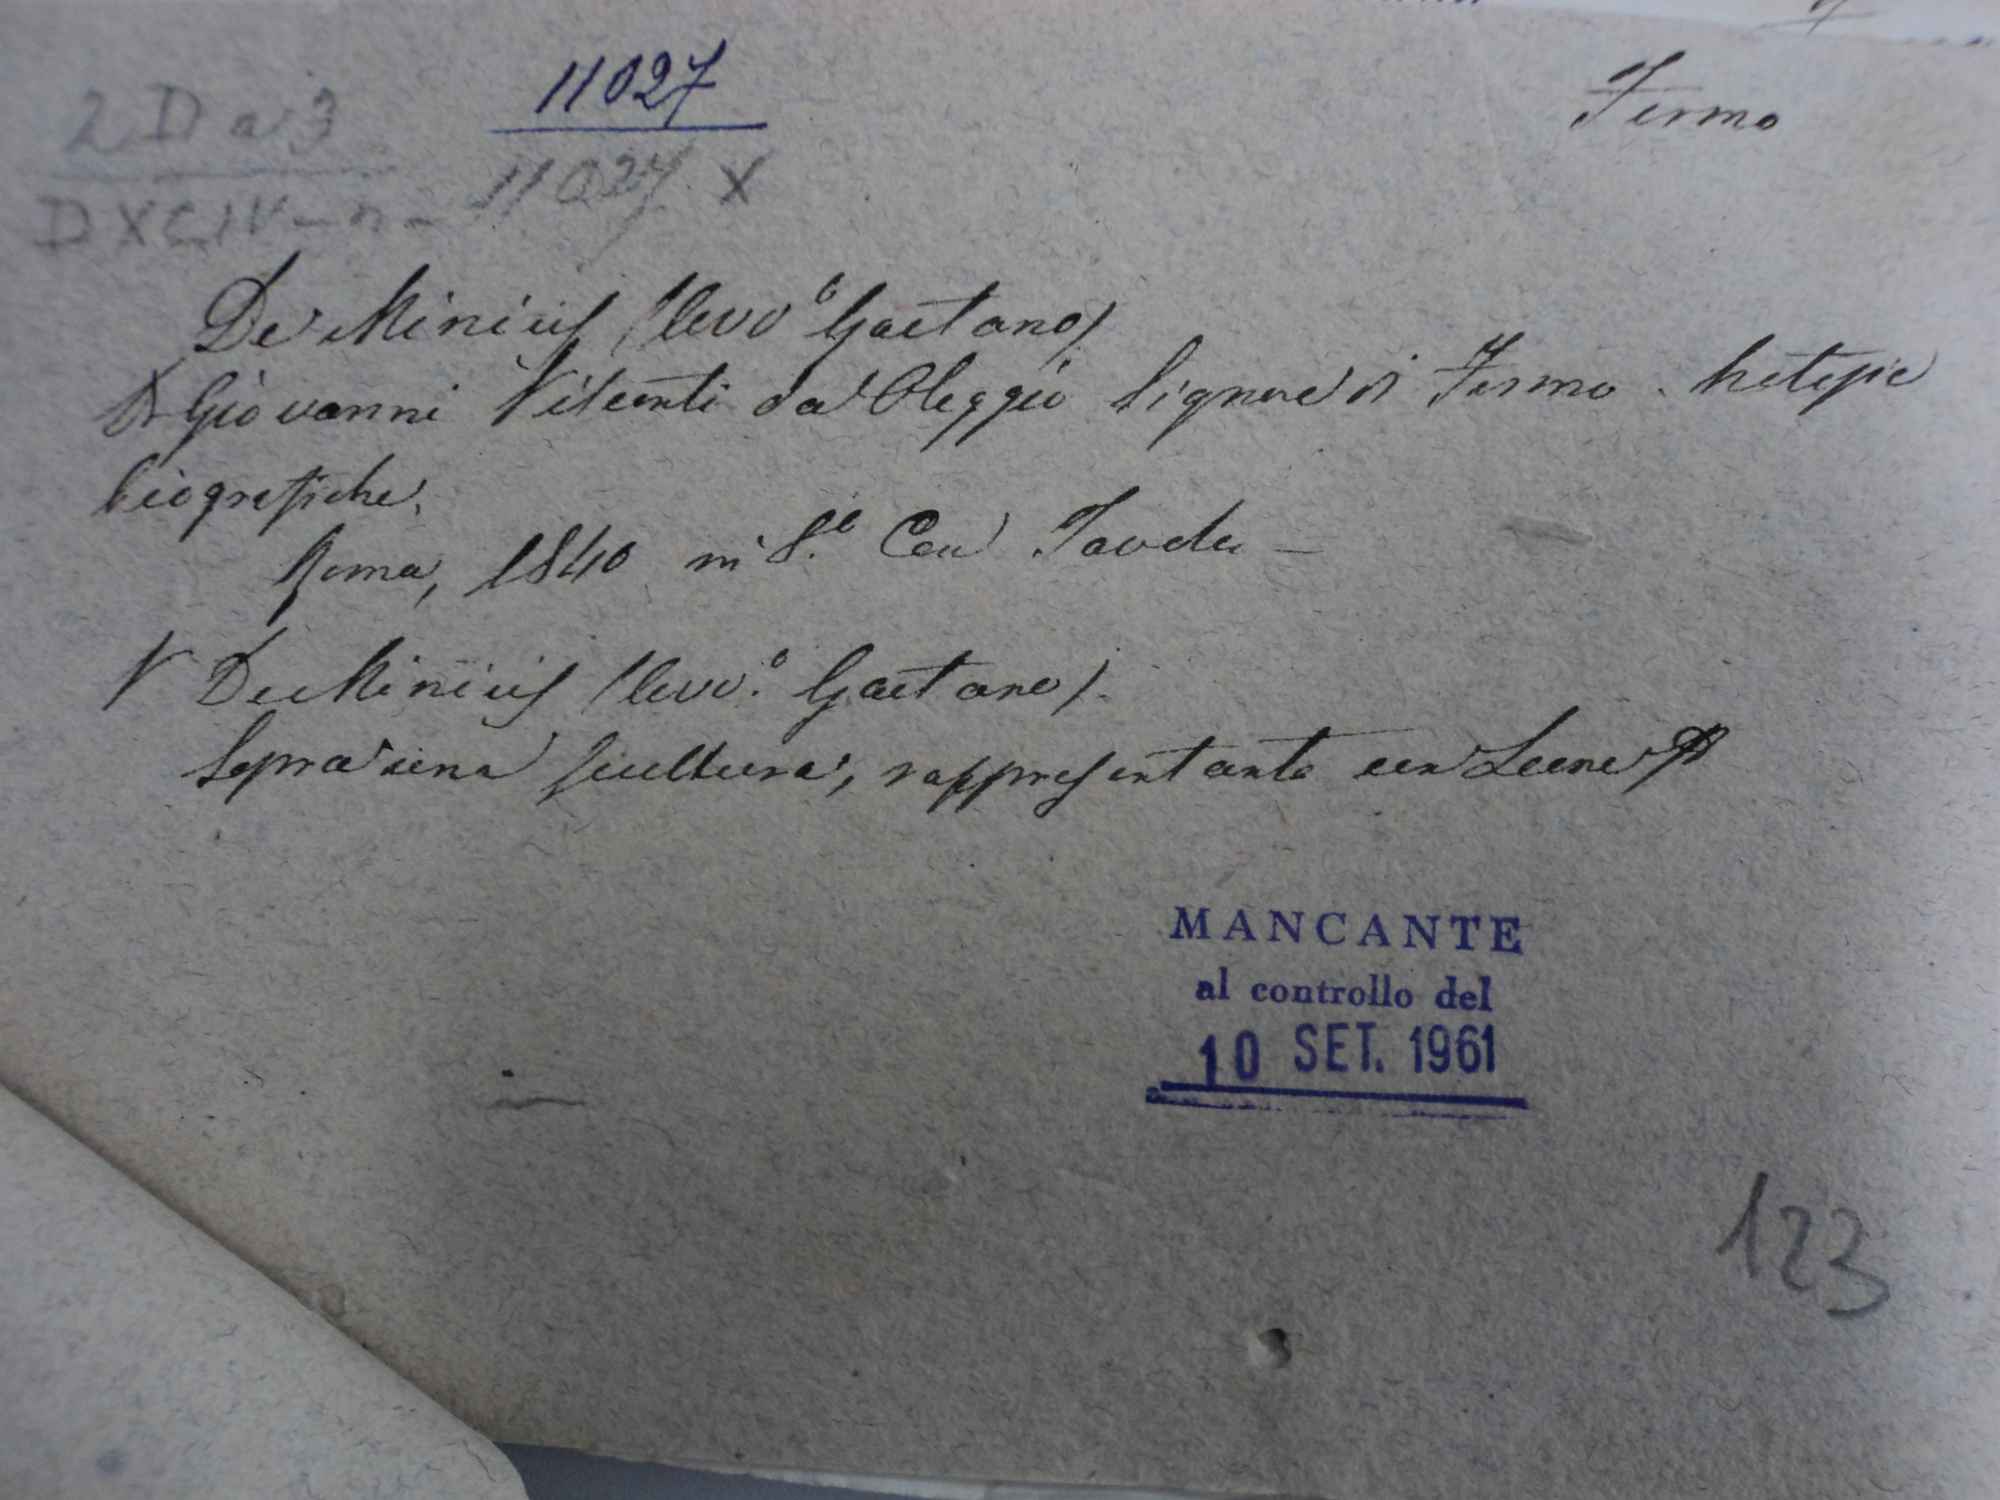 11027
Fermo
2 D a 3
DXCIV - n - 11027 X
De Minicis (Avv.º Gaetano)
Di Giovanni Visconti da Oleggio Signore di Fermo. Notizie
biografiche.
Roma, 1840 in 8.º Con Tavole -
De Minicis (Avv.º Gaetano).
Sopra una scultura, rappresentante un Leone
MANCANTE
al controllo del
10 SET. 1961
123